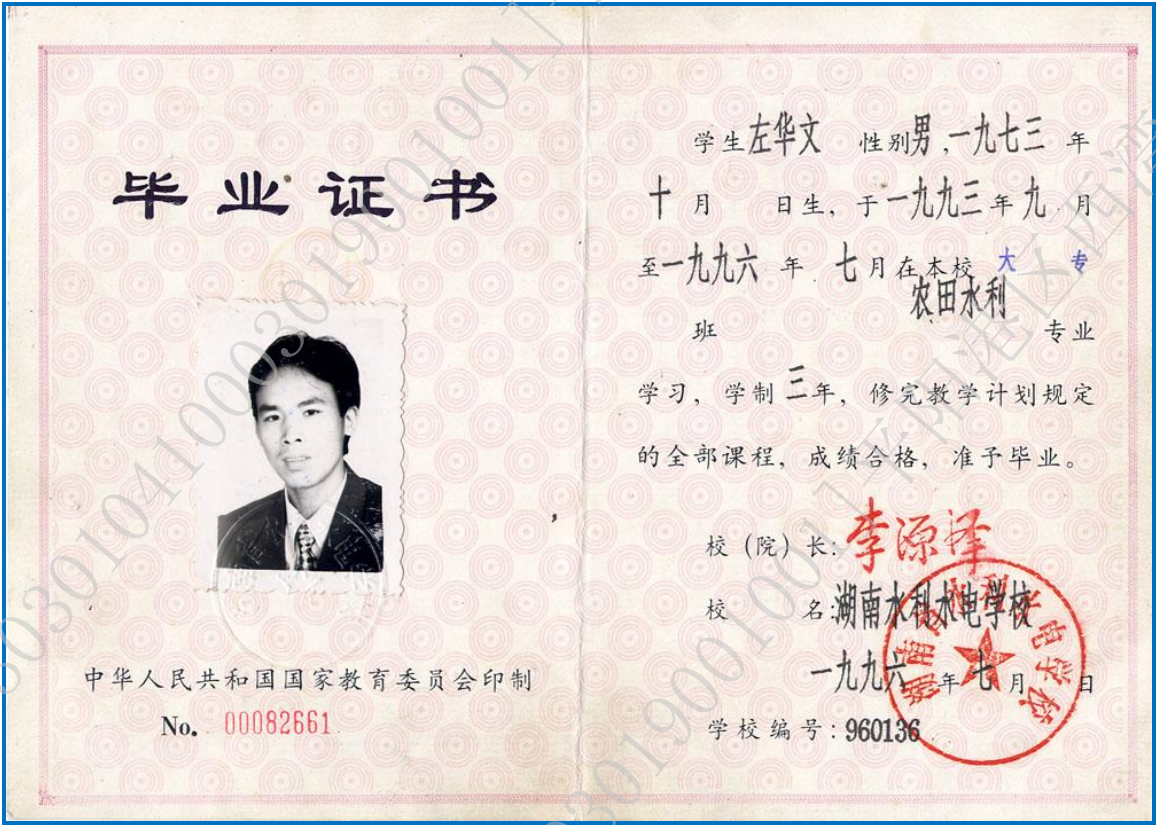 毕业证书
中华人民共和国国家教育委员会印制
No. 00082661
学生左华文 性别男,一九七三年
十月 日生, 于一九九三年九月
至一九九六年 七月在本校 大专
班 农田水利 专业
学习, 学制三年, 修完教学计划规定
的全部课程, 成绩合格, 准予毕业。
校(院)长: 李源泽
校 名: 湖南水利水电学校
一九九六年七月 日
学校编号: 960136